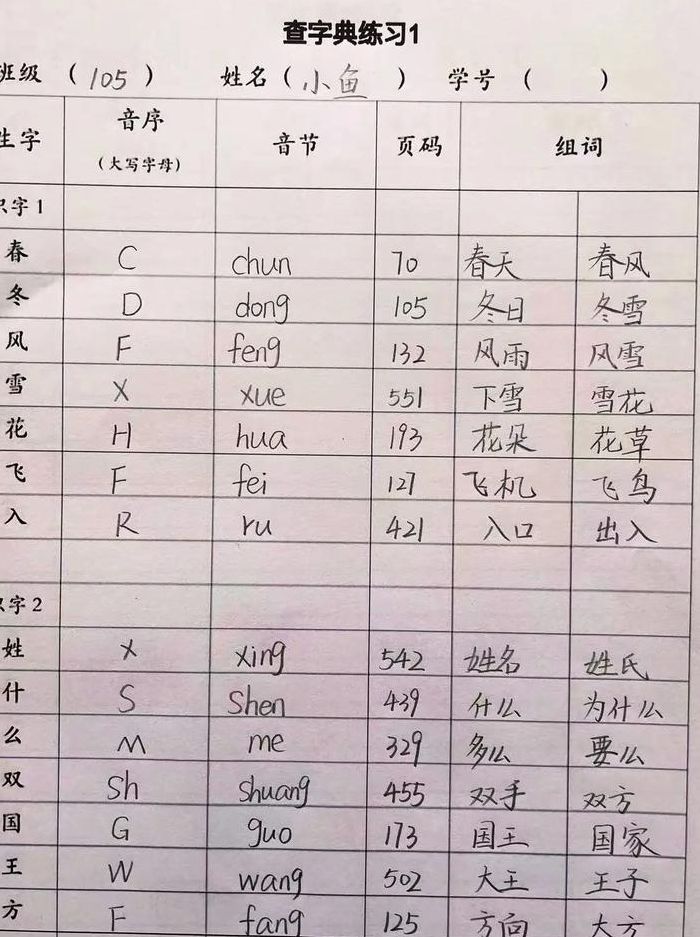 查字典练习1
班级 （ 105 ） 姓名（ 小鱼 ） 学号 （ ）
生字 音序（大写字母） 音节 页码 组词
识字1
春 C chun 70 春天 春风
冬 D dong 105 冬日 冬雪
风 F feng 132 风雨 风雪
雪 X xue 551 下雪 雪花
花 H hua 193 花朵 花草
飞 F fei 127 飞机 飞鸟
入 R ru 421 入口 出入
识字2
姓 X xing 542 姓名 姓氏
什 S Shen 439 什么 为什么
么 M me 329 多么 要么
双 Sh shuang 455 双手 双方
国 G guo 173 国王 国家
王 W wang 502 大王 王子
方 F fang 125 方向 大方